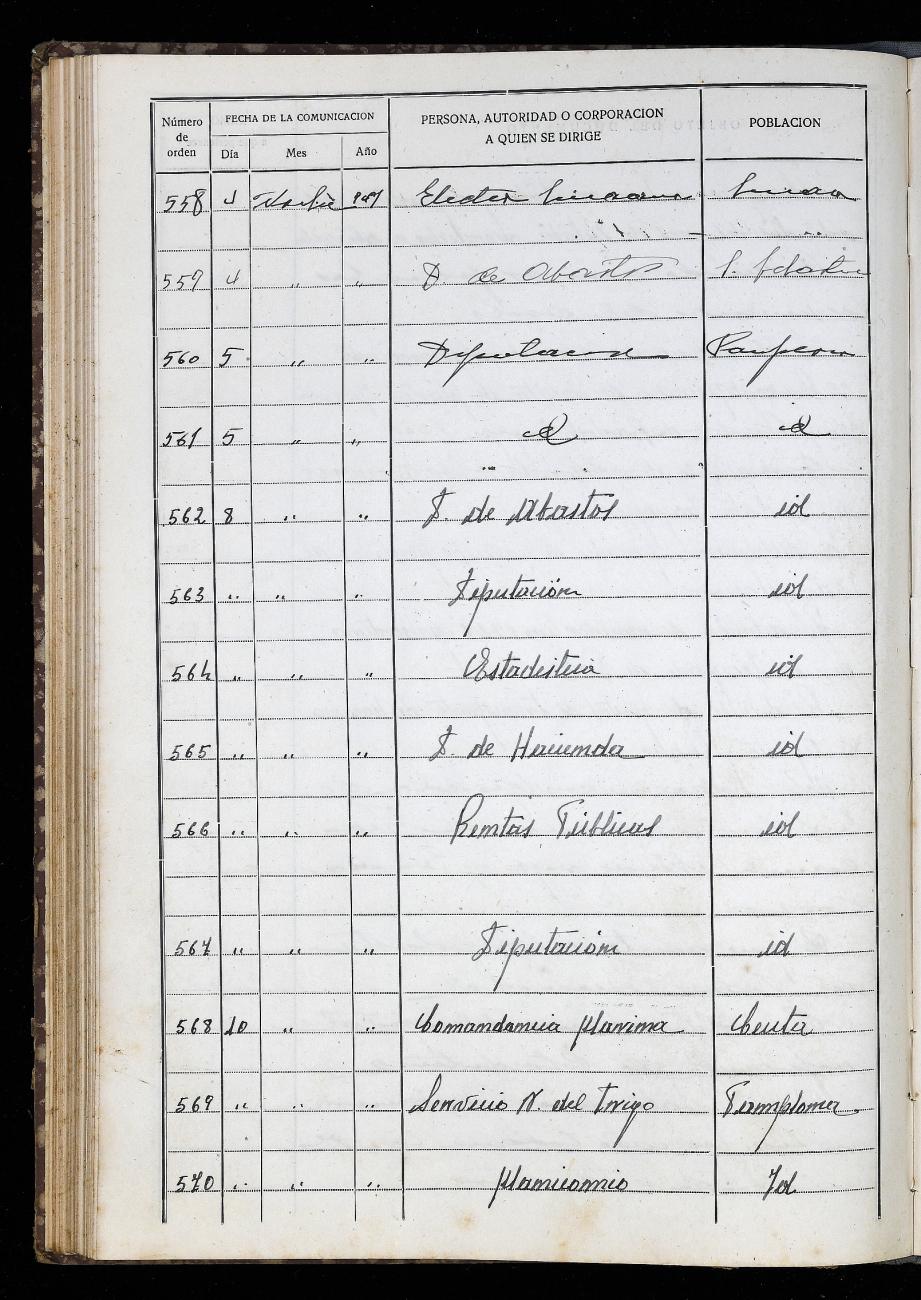 Número de orden
FECHA DE LA COMUNICACION
Día Mes Año
PERSONA, AUTORIDAD O CORPORACION
A QUIEN SE DIRIGE
POBLACION
558 4
559 4 " " D. de Abastos S. Sebastian
560 5 " " Diputacion Pamplona
561 5 " " id id
562 8 " " D. de Abastos id
563 " " " Diputación id
564 " " " Estadistica id
565 " " " D. de Hacienda id
566 " " " Rentas Públicas id
567 " " " Diputación id
568 10 " " Comandancia Marina Ceuta
569 " " " Servicio N. del Trigo Pamplona
570 " " " Manicomio Id